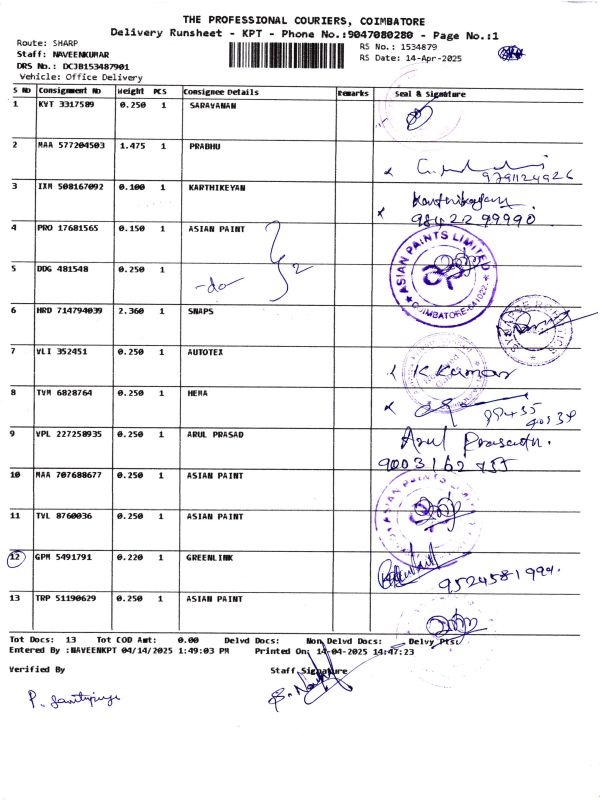 THE PROFESSIONAL COURIERS, COIMBATORE
Delivery Runsheet - KPT - Phone No.:9047080280 - Page No.:1
Route: SHARP
Staff: NAVEENKUMAR
DRS No.: DCJB153487901
Vehicle: Office Delivery
RS No.: 1534879
RS Date: 14-Apr-2025
S No Consignment No Weight PCS Consignee Details Remarks Seal & Signature
1 KVT 3317589 0.250 1 SARAVANAN
2 MAA 577204503 1.475 1 PRABHU
9791124926
3 IXM 508167092 0.100 1 KARTHIKEYAN Karthikeyan
98422 99990.
4 PRO 17681565 0.150 1 ASIAN PAINT
ASIAN PAINTS LIMITED
COIMBATORE-641022.
5 DDG 481548 0.250 1 -do-
6 HRD 714794039 2.360 1 SNAPS
7 VLI 352451 0.250 1 AUTOTEX K Kumar
8 TVM 6828764 0.250 1 HEMA
99435
9 VPL 227258935 0.250 1 ARUL PRASAD Arul Prasath.
10 MAA 707688677 0.250 1 ASIAN PAINT
11 TVL 8760036 0.250 1 ASIAN PAINT
12 GPM 5491791 0.220 1 GREENLINK
13 TRP 51190629 0.250 1 ASIAN PAINT
Tot Docs: 13 Tot COD Amt: 0.00 Delvd Docs: Non Delvd Docs: Delvy Pts:
Entered By :NAVEENKPT 04/14/2025 1:49:03 PM Printed On: 14-04-2025 14:47:23
Verified By Staff Signature